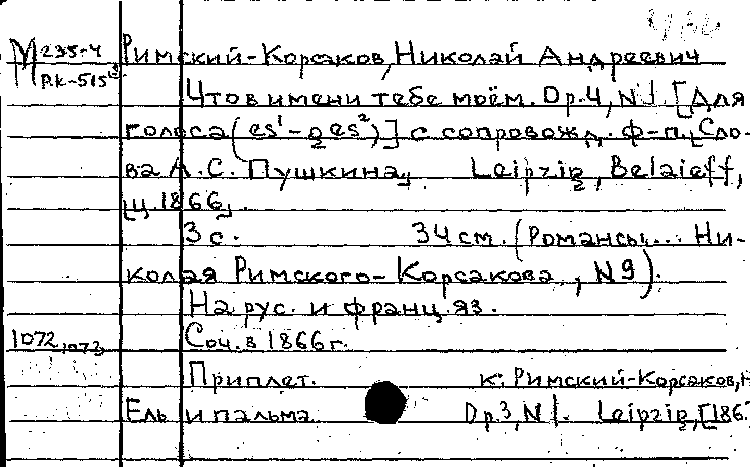 М 235-4 Римский-Корсаков, Николай Андреевич
РК-515
Что в имени тебе моём. Ор.4, N 1. [Для
голоса (es¹-ges²)] с сопровожд. ф-п. [Сло-
ва А.С. Пушкина]. Leipzig, Belaieff,
[ц. 1866].
3 с. 34 см. (Романсы... Ни-
колая Римского-Корсакова, N 9).
На рус. и франц. яз.
1072,1073 Соч. в 1866 г.
Приплет. к: Римский-Корсаков, Н
Ель и пальма. Ор.3, N 1. Leipzig, [186